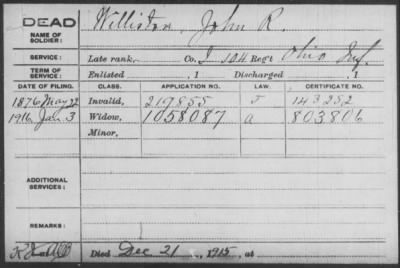 DEAD Williston, John R.
NAME OF SOLDIER:
SERVICE: Late rank, Co. I 104 Reg't Ohio Inf.
TERM OF SERVICE: Enlisted , 1 Discharged , 1
DATE OF FILING. CLASS. APPLICATION NO. LAW. CERTIFICATE NO.
1876 May 22 Invalid, 219855 J 143282
1916 Jan. 3 Widow, 1058087 a 803806
Minor,
ADDITIONAL SERVICES:
REMARKS:
Died Dec 21 , 1915, at